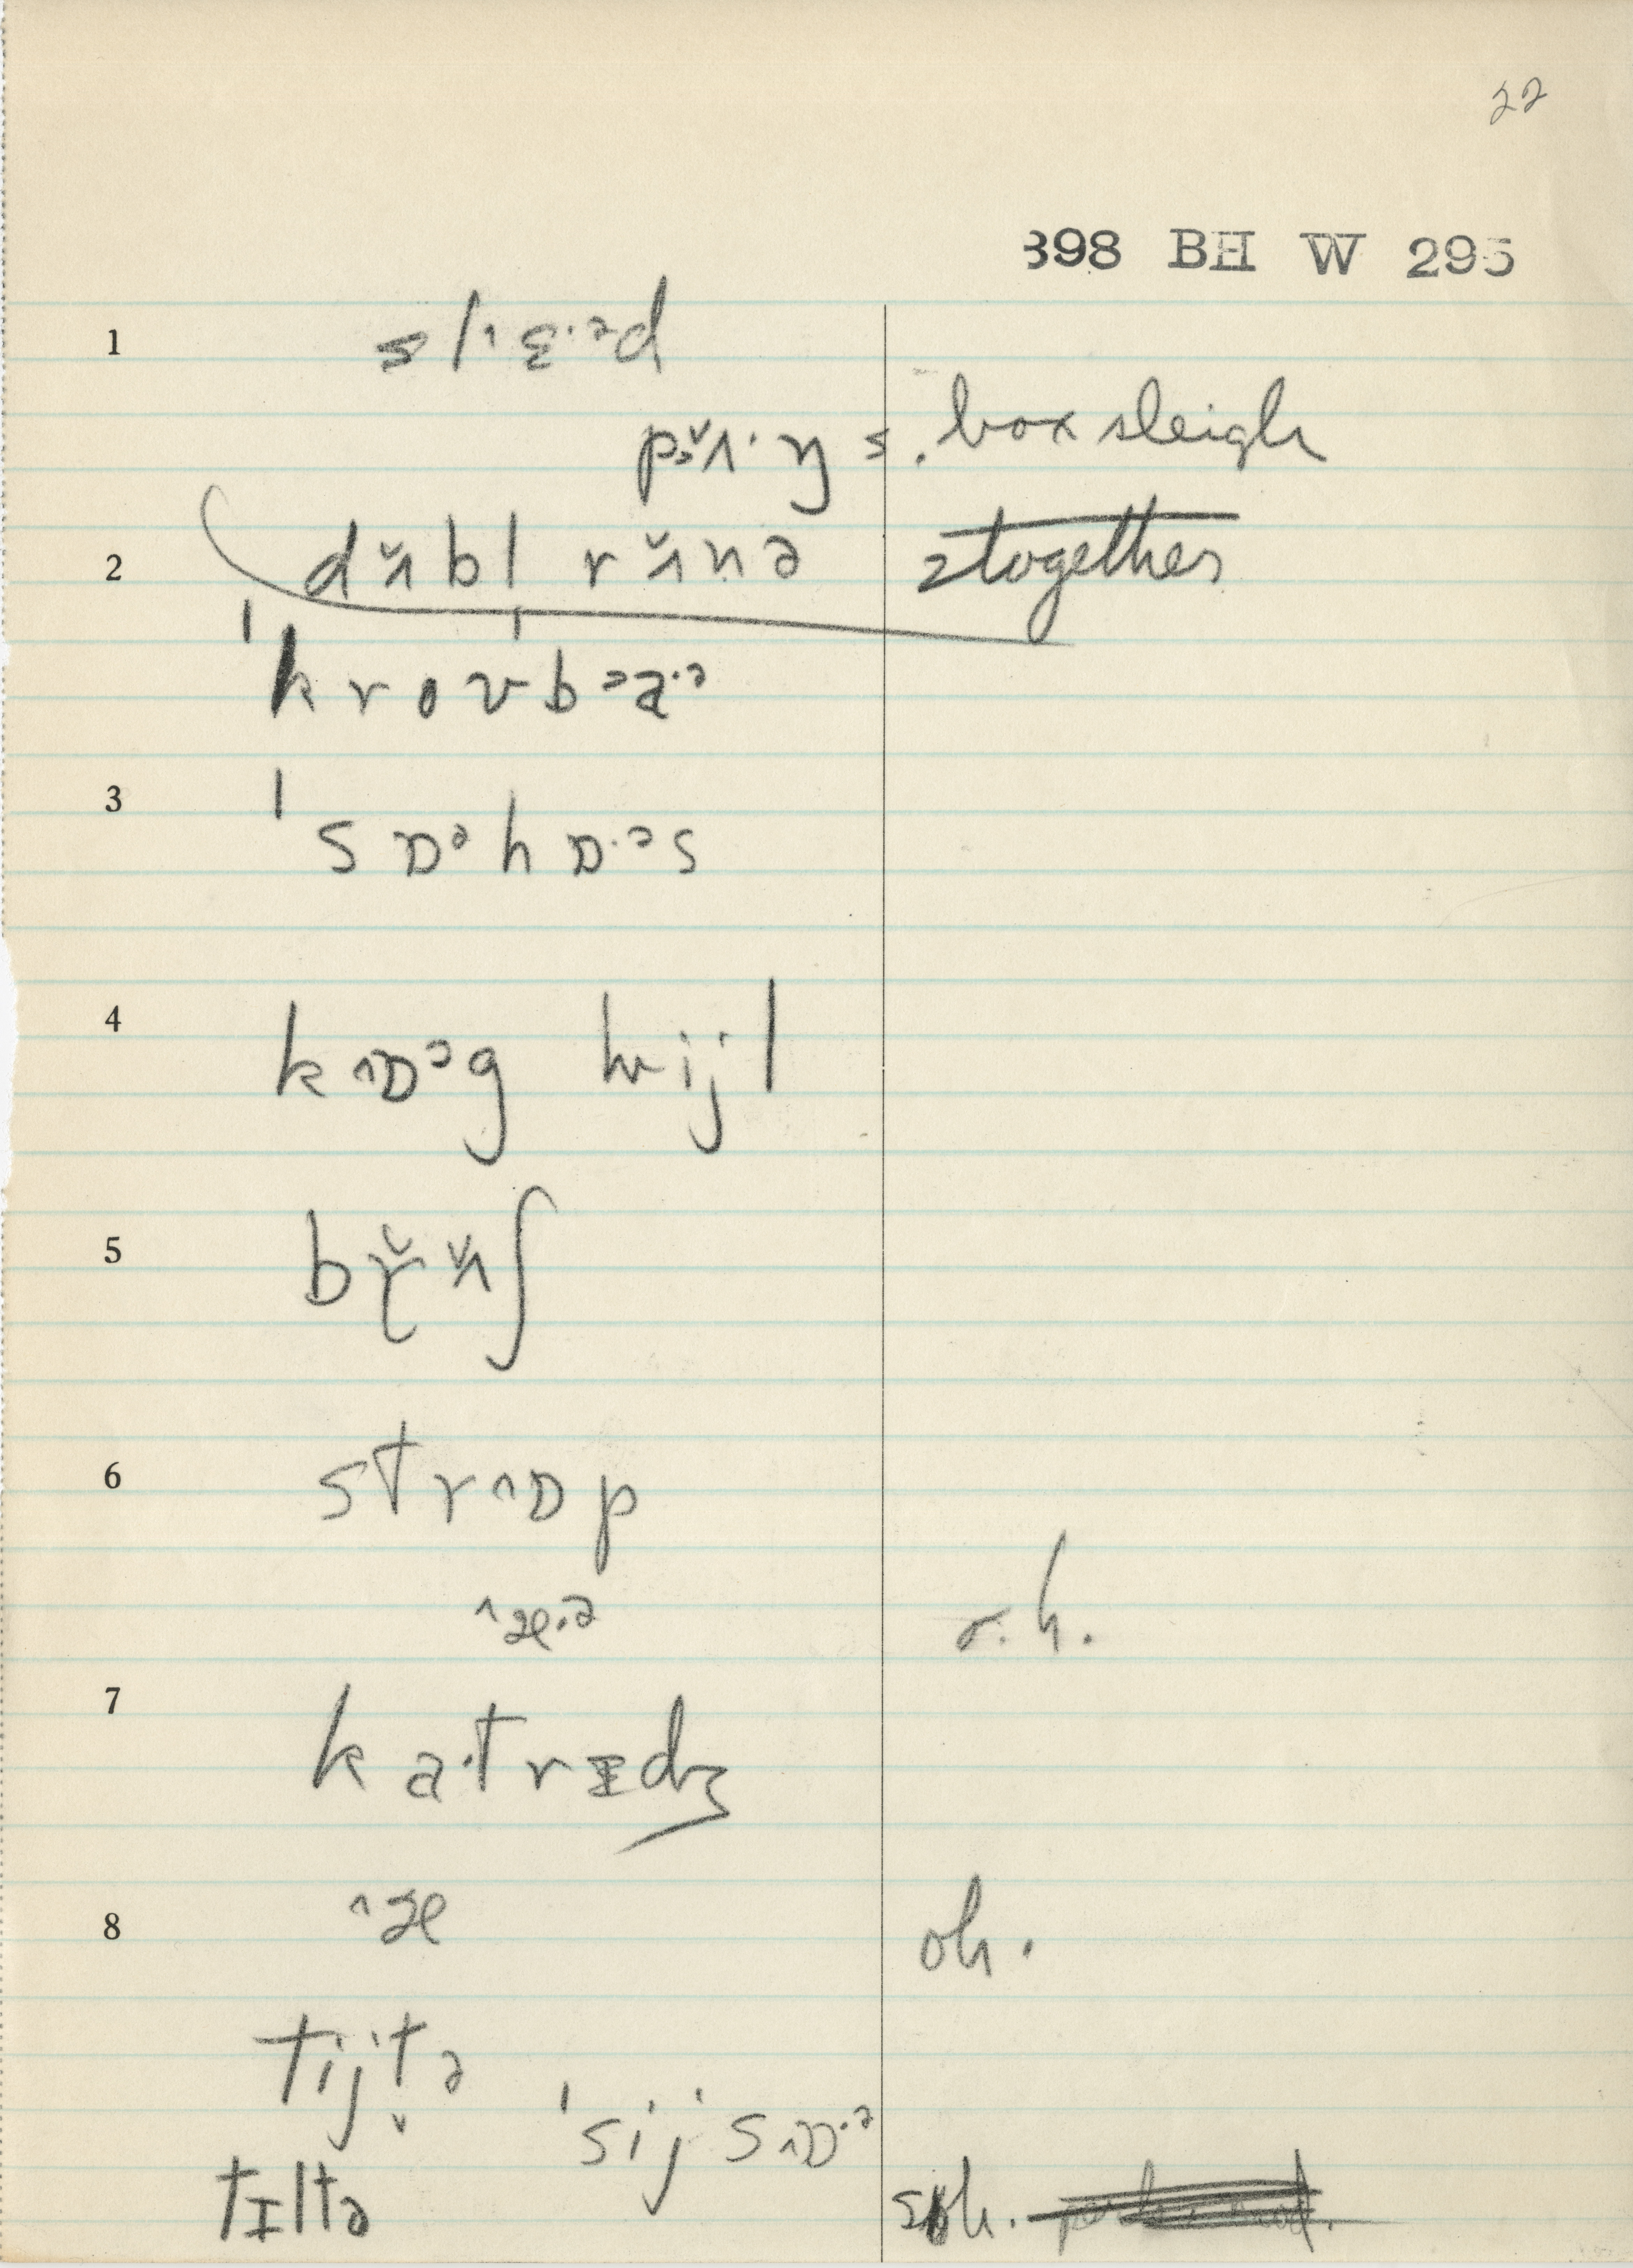 22
398 BH W 295
1 slˈɛ·ᵊd
pɔ̆ʌ·ŋ s. box sleigh
2 dʌ̌bl rʌ̌nə 2together
ˈkrovbaˑᵊ
3 ˈsɒᵊhɒ·ᵊs
4 kˆɒᵊg hwijl
5 bɽ̌ʌ̌ʃ
6 strˆɒp
ˆæ·ᵊ r.h.
7 ka·trɪdʒ
8 ˆæ oh.
tijt̬ə
ˈsijsˆɒ·ᵊ
tɪltə soh.